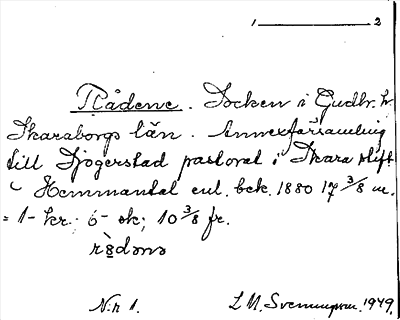 1 ——— 2
Rådene. Socken i Gudhr. hr
Skaraborgs län. Annexförsamling
till Sjogerstad pastorat i Skara stift
Hemmantal enl. bek. 1880 17 3/8 m.
= 1- kr.; 6- sk; 10 3/8 fr.
N:r 1. L M. Svenungsson. 1949.